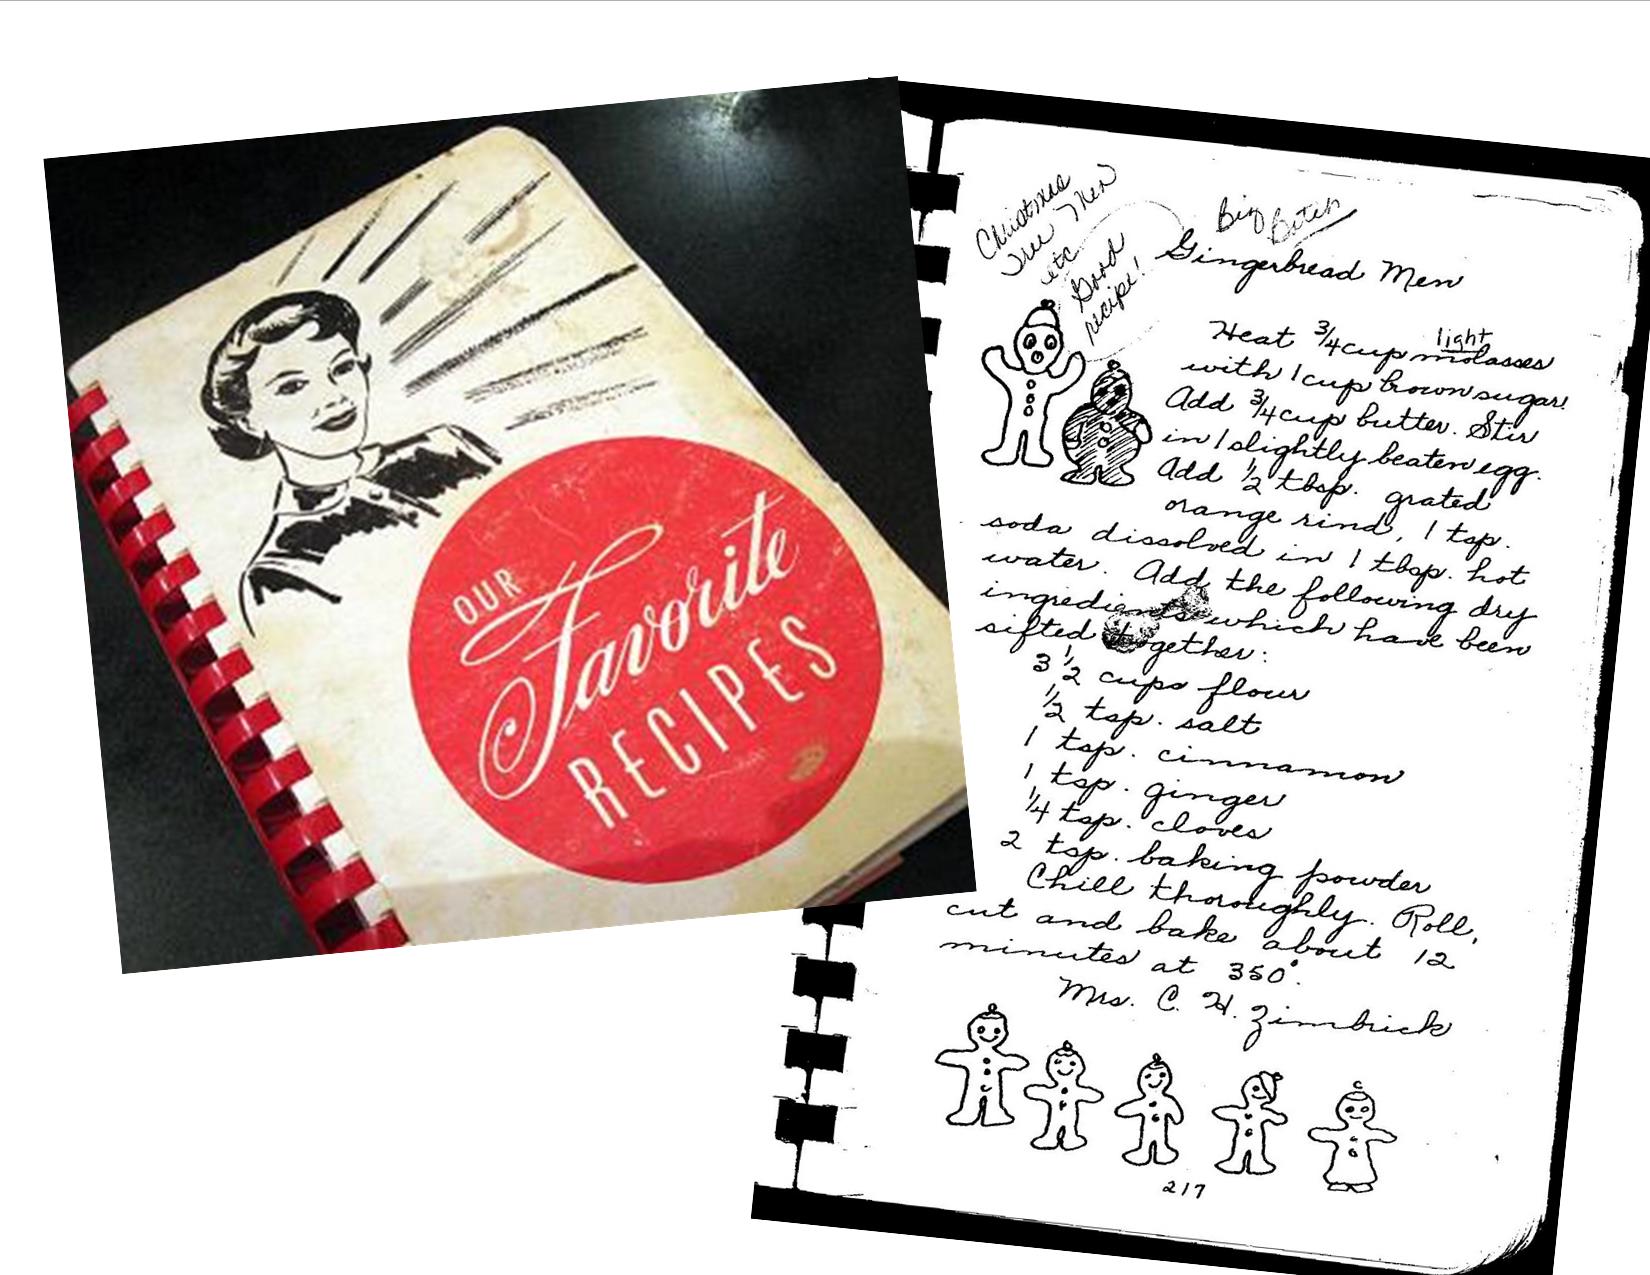 OUR
Favorite
RECIPES
Christmas
Tree Men
etc
Good
recipe!
Big
Batch
Gingerbread Men
Heat 3/4 cup light molasses
with 1 cup brown sugar.
Add 3/4 cup butter. Stir
in 1 slightly beaten egg.
Add 1/2 tbsp. grated
orange rind, 1 tsp.
soda dissolved in 1 tbsp. hot
water. Add the following dry
ingredients which have been
sifted together:
3 1/2 cups flour
1/2 tsp. salt
1 tsp. cinnamon
1 tsp. ginger
1/4 tsp. cloves
2 tsp. baking powder
Chill thoroughly. Roll,
cut and bake about 12
minutes at 350°.
Mrs. C. H. Zimbrick
217